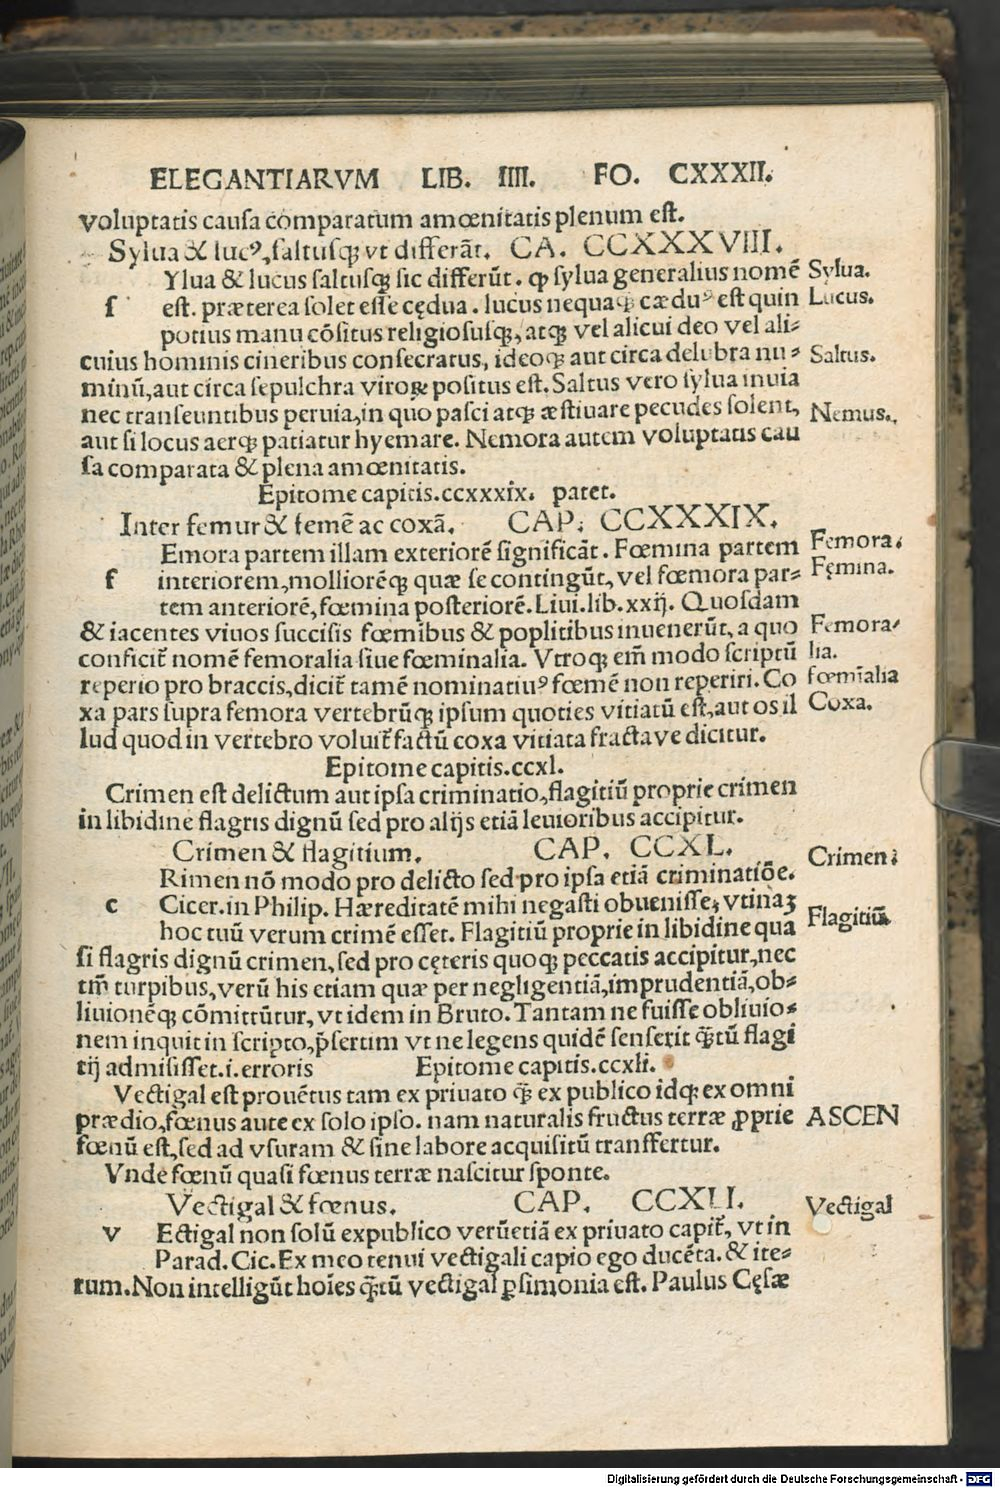 ELEGANTIARVM LIB. IIII. FO. CXXXII.
voluptatis cauſa comparatum amœnitatis plenum eſt.
Sylua & lucꝰ, ſaltuſqꝫ vt differāt. CA. CCXXXVIII.
Ylua & lucus ſaltuſqꝫ ſic differūt. ꝙ ſylua generalius nomē Sylua.
ſ eſt. præterea ſolet eſſe cędua. lucus nequaqꝫ cæduꝰ eſt quin Lucus.
potius manu cōſitus religioſuſqꝫ, atqꝫ vel alicui deo vel ali⸗
cuius hominis cineribus conſecratus, ideoqꝫ aut circa delubra nu⸗ Saltus.
minū, aut circa ſepulchra viroꝝ poſitus eſt. Saltus vero ſylua inuia
nec tranſeuntibus peruia, in quo paſci atqꝫ æſtiuare pecudes ſolent, Nemus.
aut ſi locus aerqꝫ patiatur hyemare. Nemora autem voluptatis cau
ſa comparata & plena amœnitatis.
Epitome capitis.ccxxxix. patet.
Inter femur & femē ac coxā. CAP. CCXXXIX.
Emora partem illam exteriorē ſignificāt. Fœmina partem Femora.
f interiorem, molliorēqꝫ quæ ſe contingūt, vel fœmora par⸗ Fęmina.
tem anteriorē, fœmina poſteriorē. Liui.lib.xxij. Quoſdam
& iacentes viuos ſucciſis fœmibus & poplitibus inuenerūt, a quo Femora⸗
conficit̃ nomē femoralia ſiue fœminalia. Vtroqꝫ em̄ modo ſcriptū lia.
reperio pro braccis, dicit̃ tamē nominatiuꝰ fœmē non reperiri. Co fœmīalia
xa pars ſupra femora vertebrūqꝫ ipſum quoties vitiatū eſt, aut os il Coxa.
lud quod in vertebro voluit̃ factū coxa vitiata fractave dicitur.
Epitome capitis.ccxl.
Crimen eſt delictum aut ipſa criminatio, flagitiū proprie crimen
in libidine flagris dignū ſed pro alijs etiā leuioribus accipitur.
Crimen & flagitium. CAP. CCXL.
Rimen nō modo pro delicto ſed pro ipſa etiā criminatiōe. Crimen.
c Cicer.in Philip. Hæreditatē mihi negaſti obueniſſe, vtinaꝫ
hoc tuū verum crimē eſſet. Flagitiū proprie in libidine qua Flagitiū
ſi flagris dignū crimen, ſed pro cęteris quoqꝫ peccatis accipitur, nec
tm̄ turpibus, verū his etiam quæ per negligentiā, imprudentiā, ob⸗
liuionēqꝫ cōmittūtur, vt idem in Bruto. Tantam ne fuiſſe obliuio⸗
nem inquit in ſcripto, p̄ſertim vt ne legens quidē ſenſerit q̄tū flagi
tij admiſiſſet.i.erroris Epitome capitis.ccxli.
Vectigal eſt prouētus tam ex priuato q̄ ex publico idqꝫ ex omni
prædio, fœnus aute ex ſolo ipſo. nam naturalis fructus terræ ꝓprie ASCEN
fœnū eſt, ſed ad vſuram & ſine labore acquiſitū tranſfertur.
Vnde fœnū quaſi fœnus terræ naſcitur ſponte.
Vectigal & fœnus. CAP. CCXLI. Vectigal
v Ectigal non ſolū expublico verūetiā ex priuato capit̃, vt in
Parad. Cic. Ex meo tenui vectigali capio ego ducēta. & ite⸗
rum. Non intelligūt hoīes q̄tū vectigal ꝑſimonia eſt. Paulus Cęſæ
Digitalisierung gefördert durch die Deutsche Forschungsgemeinschaft - DFG